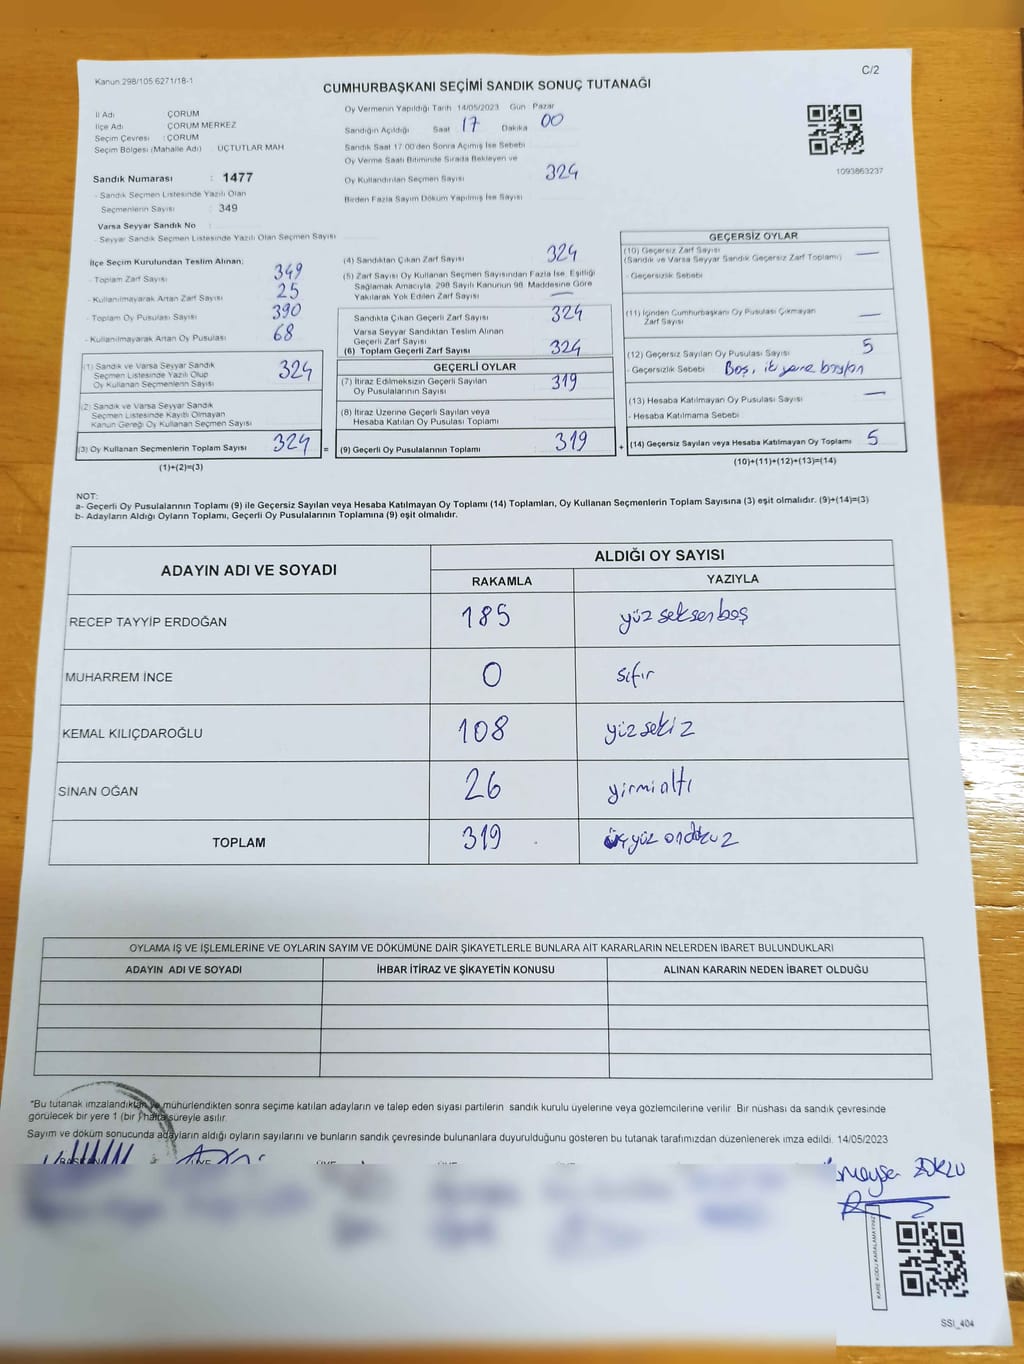 Kanun 298/105 6271/18-1
C/2
CUMHURBAŞKANI SEÇİMİ SANDIK SONUÇ TUTANAĞI
İl Adı ÇORUM
İlçe Adı ÇORUM MERKEZ
Seçim Çevresi : ÇORUM
Seçim Bölgesi (Mahalle Adı) UÇTUTLAR MAH
Sandık Numarası : 1477
- Sandık Seçmen Listesinde Yazılı Olan
Seçmenlerin Sayısı : 349
Varsa Seyyar Sandık No
- Seyyar Sandık Seçmen Listesinde Yazılı Olan Seçmen Sayısı
Oy Vermenin Yapıldığı Tarih 14/05/2023 Gün Pazar
Sandığın Açıldığı Saat 17 Dakika 00
Sandık Saat 17:00'den Sonra Açılmış İse Sebebi
Oy Verme Saati Bitiminde Sırada Bekleyen ve
Oy Kullandırılan Seçmen Sayısı 324
Birden Fazla Sayım Döküm Yapılmış İse Sayısı
1093863237
İlçe Seçim Kurulundan Teslim Alınan;
- Toplam Zarf Sayısı 349
- Kullanılmayarak Artan Zarf Sayısı 25
- Toplam Oy Pusulası Sayısı 390
- Kullanılmayarak Artan Oy Pusulası 68
(1) Sandık ve Varsa Seyyar Sandık
Seçmen Listesinde Yazılı Olup
Oy Kullanan Seçmenlerin Sayısı 324
(2) Sandık ve Varsa Seyyar Sandık
Seçmen Listesinde Kayıtlı Olmayan
Kanun Gereği Oy Kullanan Seçmen Sayısı
(3) Oy Kullanan Seçmenlerin Toplam Sayısı 324
(1)+(2)=(3)
(4) Sandıktan Çıkan Zarf Sayısı 324
(5) Zarf Sayısı Oy Kullanan Seçmen Sayısından Fazla İse, Eşitliği
Sağlamak Amacıyla, 298 Sayılı Kanunun 98. Maddesine Göre
Yakılarak Yok Edilen Zarf Sayısı —
Sandıkta Çıkan Geçerli Zarf Sayısı 324
Varsa Seyyar Sandıktan Teslim Alınan
Geçerli Zarf Sayısı
(6) Toplam Geçerli Zarf Sayısı 324
GEÇERLİ OYLAR
(7) İtiraz Edilmeksizin Geçerli Sayılan
Oy Pusulalarının Sayısı 319
(8) İtiraz Üzerine Geçerli Sayılan veya
Hesaba Katılan Oy Pusulası Toplamı
= (9) Geçerli Oy Pusulalarının Toplamı 319
GEÇERSİZ OYLAR
(10) Geçersiz Zarf Sayısı
(Sandık ve Varsa Seyyar Sandık Geçersiz Zarf Toplamı) —
- Geçersizlik Sebebi
(11) İçinden Cumhurbaşkanı Oy Pusulası Çıkmayan
Zarf Sayısı —
(12) Geçersiz Sayılan Oy Pusulası Sayısı 5
- Geçersizlik Sebebi Boş, iki yere basılan
(13) Hesaba Katılmayan Oy Pusulası Sayısı —
- Hesaba Katılmama Sebebi
+ (14) Geçersiz Sayılan veya Hesaba Katılmayan Oy Toplamı 5
(10)+(11)+(12)+(13)=(14)
NOT:
a- Geçerli Oy Pusulalarının Toplamı (9) ile Geçersiz Sayılan veya Hesaba Katılmayan Oy Toplamı (14) Toplamları, Oy Kullanan Seçmenlerin Toplam Sayısına (3) eşit olmalıdır. (9)+(14)=(3)
b- Adayların Aldığı Oyların Toplamı, Geçerli Oy Pusulalarının Toplamına (9) eşit olmalıdır.
ADAYIN ADI VE SOYADI ALDIĞI OY SAYISI
RAKAMLA YAZIYLA
RECEP TAYYİP ERDOĞAN 185 yüz seksen beş
MUHARREM İNCE 0 sıfır
KEMAL KILIÇDAROĞLU 108 yüz sekiz
SİNAN OĞAN 26 yirmi altı
TOPLAM 319 üç yüz on dokuz
OYLAMA İŞ VE İŞLEMLERİNE VE OYLARIN SAYIM VE DÖKÜMÜNE DAİR ŞİKAYETLERLE BUNLARA AİT KARARLARIN NELERDEN İBARET BULUNDUKLARI
ADAYIN ADI VE SOYADI İHBAR İTİRAZ VE ŞİKAYETİN KONUSU ALINAN KARARIN NEDEN İBARET OLDUĞU
"Bu tutanak imzalandıktan ve mühürlendikten sonra seçime katılan adayların ve talep eden siyasi partilerin sandık kurulu üyelerine veya gözlemcilerine verilir Bir nüshası da sandık çevresinde
görülecek bir yere 1 (bir ) hafta süreyle asılır.
Sayım ve döküm sonucunda adayların aldığı oyların sayılarını ve bunların sandık çevresinde bulunanlara duyurulduğunu gösteren bu tutanak tarafımızdan düzenlenerek imza edildi. 14/05/2023
BAŞKAN ÜYE
KARE KODU KARALAMAYINIZ
SSI_404